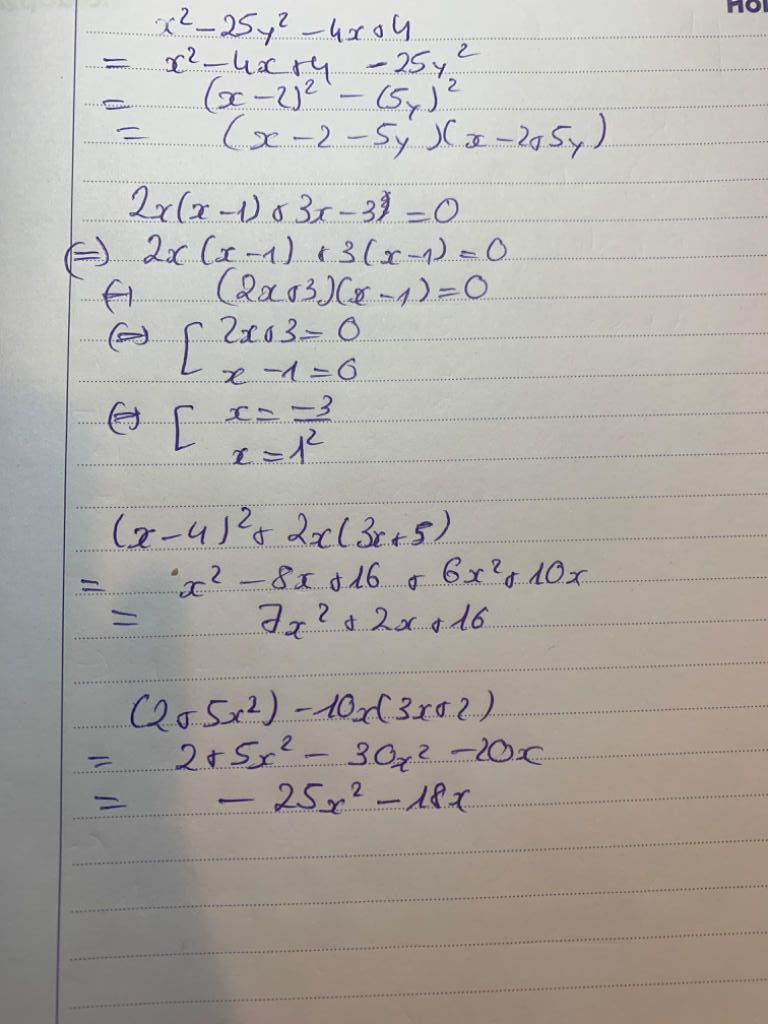 HOI
x² - 25y² - 4x + 4
= x² - 4x + 4 - 25y²
= (x - 2)² - (5y)²
= (x - 2 - 5y)(x - 2 + 5y)
2x(x - 1) + 3x - 3 = 0
⇔ 2x(x - 1) + 3(x - 1) = 0
⇔ (2x + 3)(x - 1) = 0
⇔ [ 2x + 3 = 0
x - 1 = 0
⇔ [ x = -3/2
x = 1
(x - 4)² + 2x(3x + 5)
= x² - 8x + 16 + 6x² + 10x
= 7x² + 2x + 16
(2 + 5x²) - 10x(3x + 2)
= 2 + 5x² - 30x² - 20x
= - 25x² - 18x